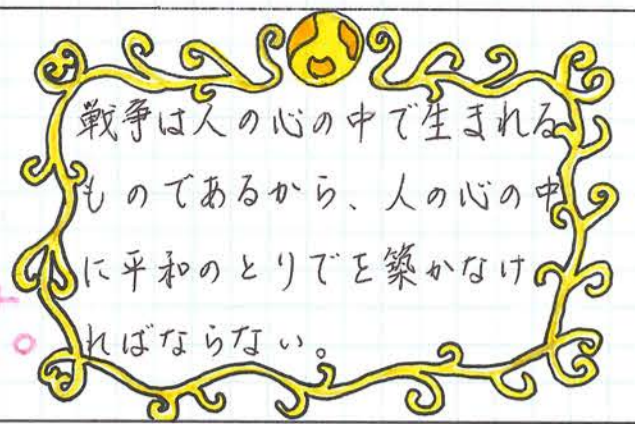 戦争は人の心の中で生まれる
ものであるから、人の心の中
に平和のとりでを築かなけ
ればならない。